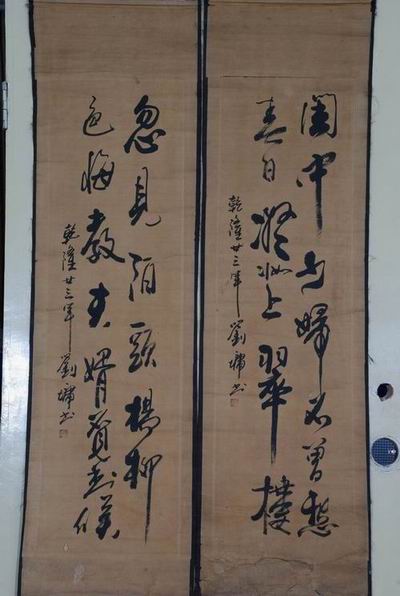 閨中少婦不曾愁
春日凝妝上翠樓
乾隆廿三年 劉墉書
忽見陌頭楊柳
色悔教夫婿覓封侯
乾隆廿三年 劉墉書